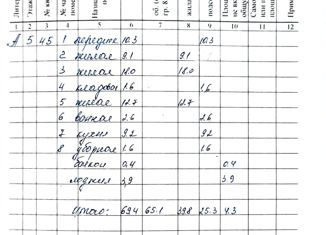 1 2 3 4 5 6 7 8 9 10 11 12
А 5 45 1 передняя 10.3 10.3
2 жилая 9.1 9.1
3 жилая 18.0 18.0
4 кладовая 1.6 1.6
5 жилая 12.7 12.7
6 ванная 2.6 2.6
7 кухня 9.2 9.2
8 уборная 1.6 1.6
балкон 0,4 0.4
лоджия 3,9 3.9
Итого: 69.4 65.1 39.8 25.3 4.3